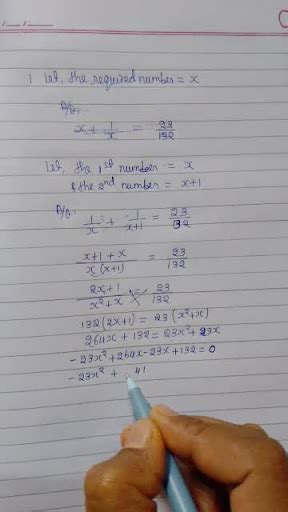 1 Let, the required number = x
A/Q,
x + 1/x = 23/132
Let, the 1st number = x
& the 2nd number = x+1
A/Q,
1/x + 1/x+1 = 23/132
x+1+x/x(x+1) = 23/132
2x+1/x²+x = 23/132
132(2x+1) = 23(x²+x)
264x + 132 = 23x² + 23x
-23x² + 264x - 23x + 132 = 0
-23x² + 41